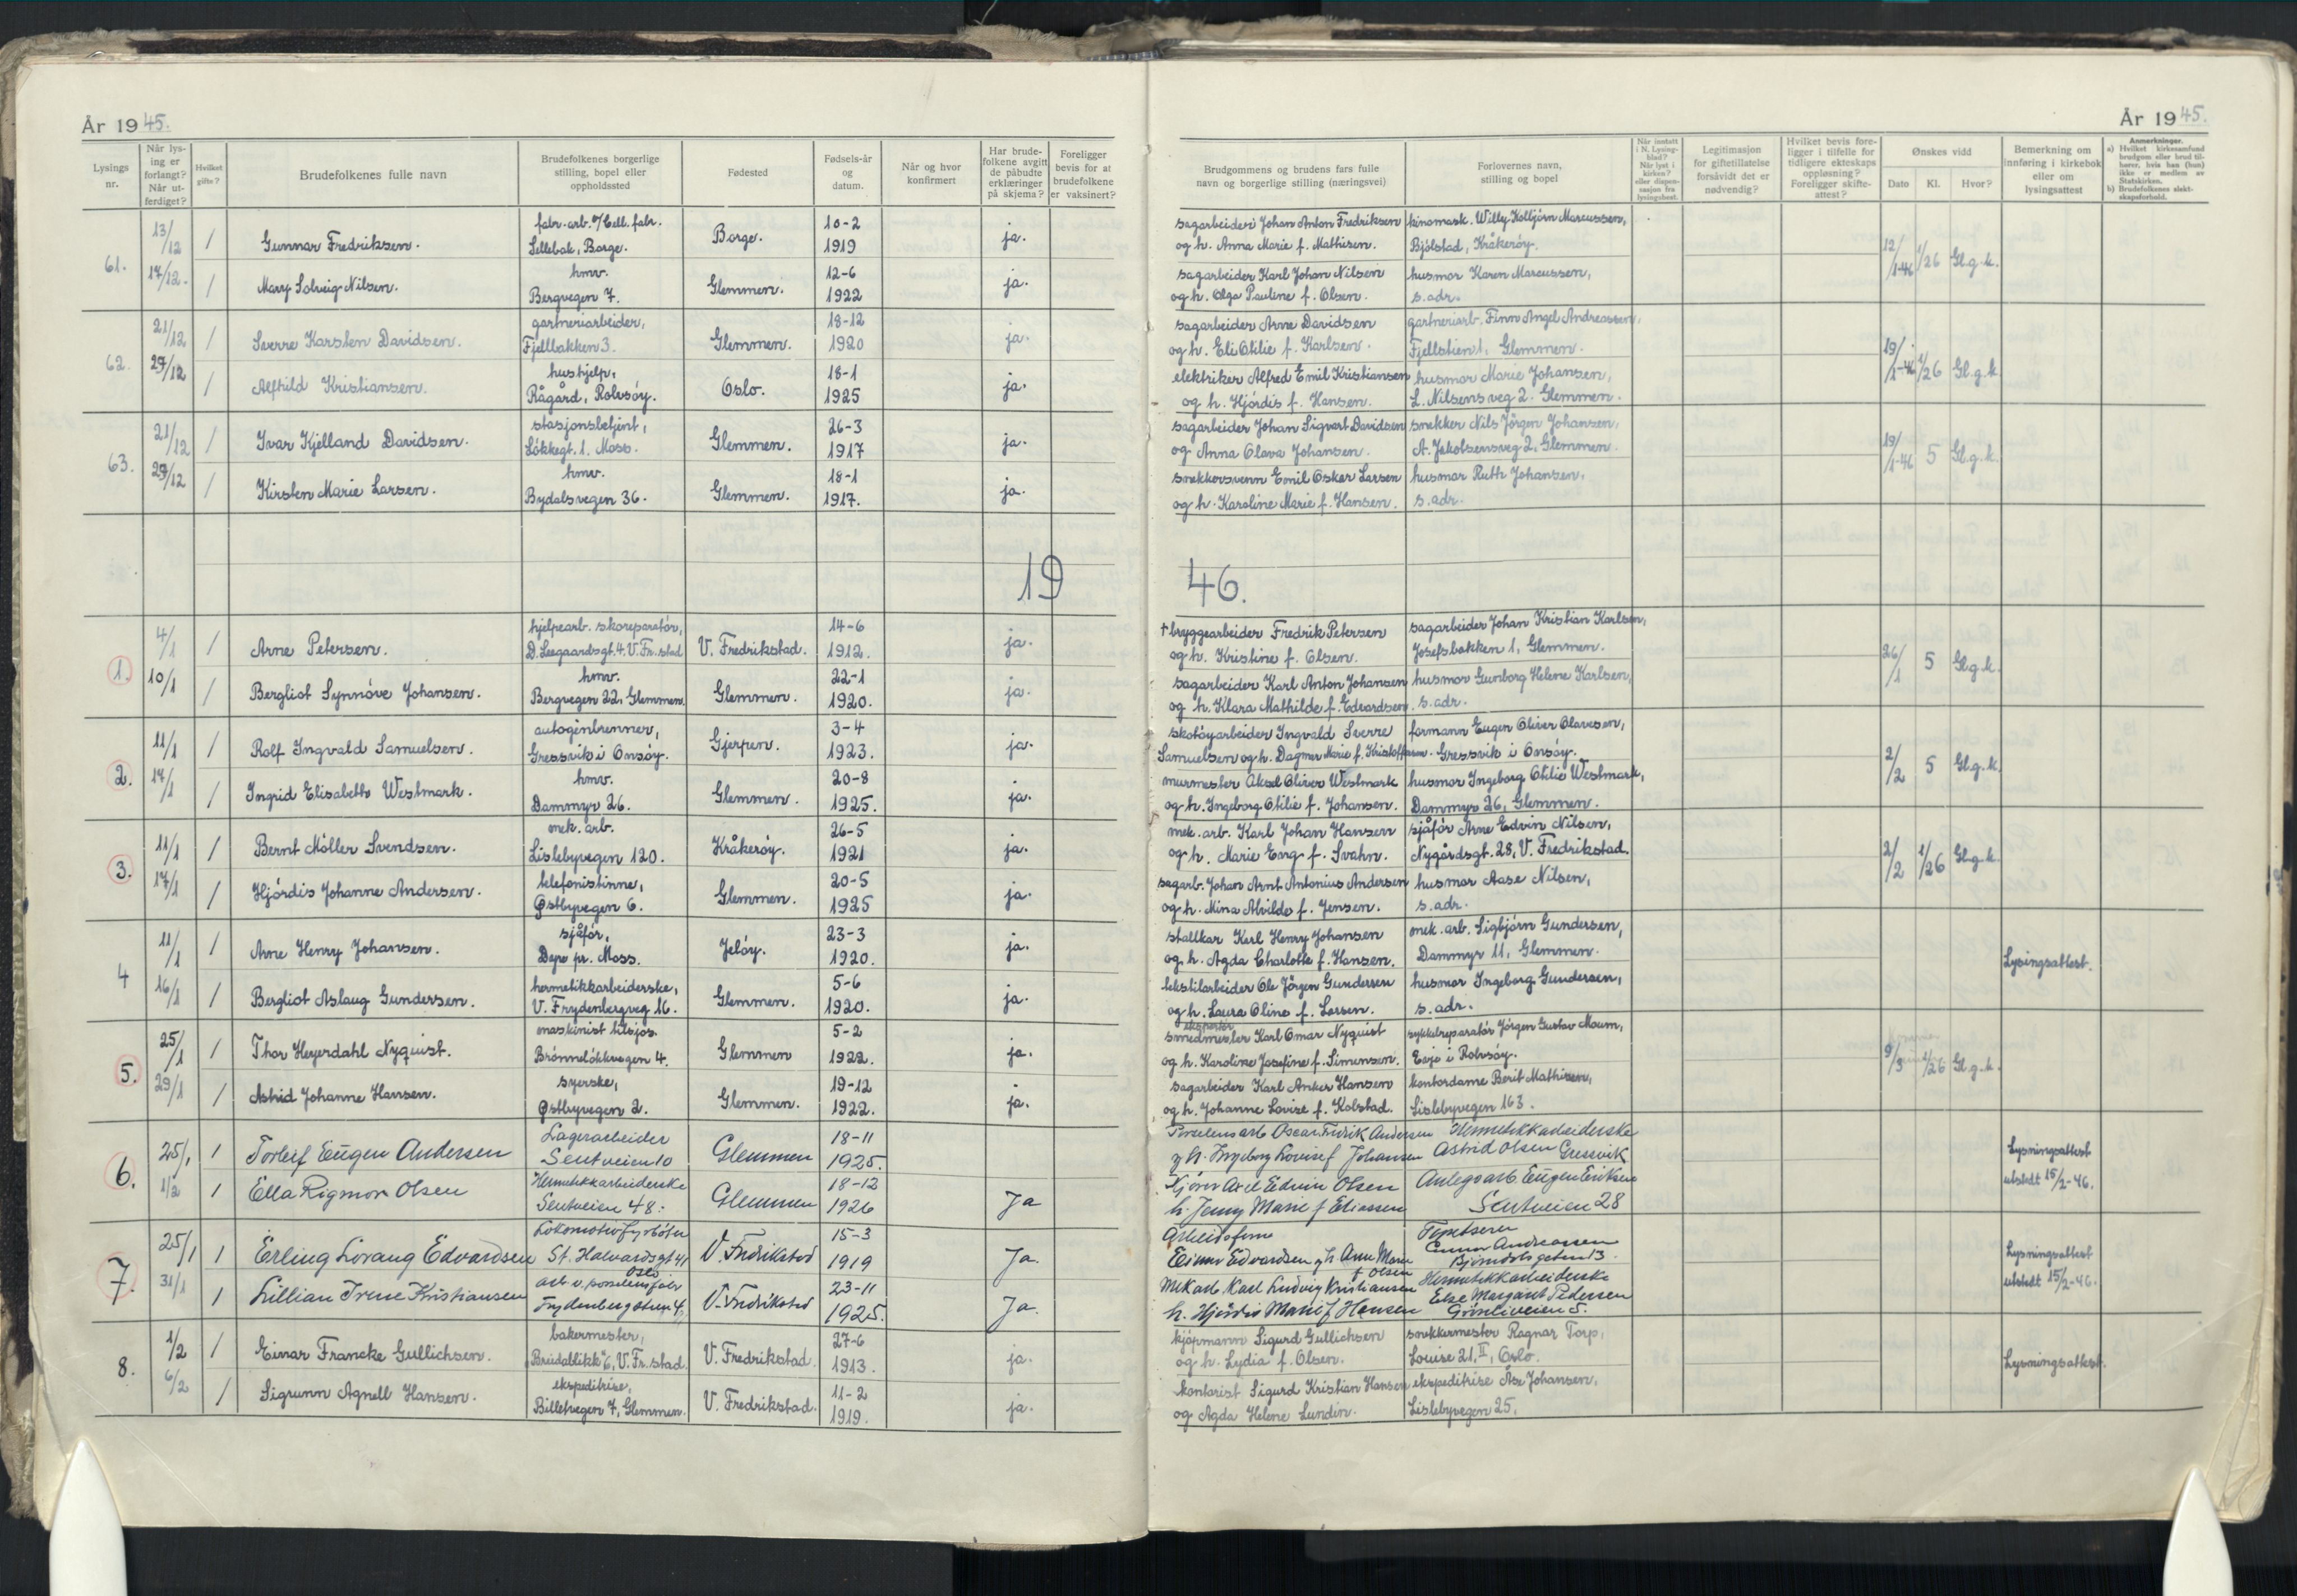 År 1945.
Lysings nr.
Når lysing er forlangt? Når utferdiget?
Hvilket gifte?
Brudefolkenes fulle navn
Brudefolkenes borgerlige stilling, bopel eller oppholdssted
Fødested
Fødsels-år og datum.
Når og hvor konfirmert
Har brudefolkene avgitt de påbudte erklæringer på skjema?
Foreligger bevis for at brudefolkene er vaksinert?
61.
13/12
17/12.
1 Gunnar Fredriksen.
fabr.-arb. v/Cell. fabr.
Sellebak, Borge.
Borge.
10-2
1919
ja.
1 Mary Solveig Nilsen.
hmv.
Bergvegen 7.
Glemmen.
12-6
1922
ja.
62.
21/12
27/12
1 Sverre Karsten Davidsen.
gartneriarbeider,
Fjellbakken 3.
Glemmen.
18-12
1920
ja.
1 Alfhild Kristiansen.
hushjelp,
Rågård, Rolvsöy.
Oslo.
18-1
1925
ja.
63.
21/12
27/12
1 Ivar Kjelland Davidsen.
stasjonsbetjent,
Lökkegt. 1. Moss.
Glemmen.
26-3
1917
ja.
1 Kirsten Marie Larsen.
hmv.
Bydalsvegen 36.
Glemmen.
18-1
1917.
ja.
19
1.
4/1
10/1
1 Arne Petersen.
hjelpearb. skoreparatör,
D. Leegaardsgt. 4. V. Fr.stad
V. Fredrikstad.
14-6
1912.
ja.
1 Bergliot Synnöve Johansen.
hmv.
Bergvegen 22, Glemmen.
Glemmen.
22-1
1920.
ja.
2.
11/1
17/1
1 Rolf Ingvald Samuelsen.
autogenbrenner,
Gressvik i Onsöy.
Gjerpen.
3-4
1923.
ja.
1 Ingrid Elisabeth Westmark.
hmv.
Dammyr 26.
Glemmen.
20-8
1925.
ja.
3.
11/1
17/1
1 Bernt Möller Svendsen.
mek. arb.
Lislebyvegen 120.
Kråkeröy.
26-5
1921
ja.
1 Hjördis Johanne Andersen.
telefonistinne,
Østbyvegen 6.
Glemmen.
20-5
1925
ja.
4
11/1
16/1
1 Arne Henry Johansen.
sjåför,
pr. Moss.
Jelöy.
23-3
1920.
ja.
1 Bergliot Aslaug Gundersen.
hermetikkarbeiderske,
V. Frydenbergveg 16.
Glemmen.
5-6
1920.
ja.
5.
25/1
29/1
1 Thor Heyerdahl Nyquist.
maskinist tilsjøs.
Brönnelökkvegen 4.
Glemmen
5-2
1922.
ja.
1 Astrid Johanne Hansen.
syerske,
Østbyvegen 2.
Glemmen.
19-12
1922.
ja.
6.
25/1
1/2
1 Torleif Eugen Andersen
Lagerarbeider
Seutveien 10
Glemmen
18-11
1925.
1 Ella Rigmor Olsen
Hermetikkarbeiderske
Seutveien 48.
Glemmen
18-12
1926
Ja
7.
25/1
31/1
1 Erling Lorang Edvardsen
Lokomotivfyrböter
St. Halvardsgt 41
Oslo
V. Fredrikstad
15-3
1919
Ja.
1 Lillian Irene Kristiansen
arb. v. porselensfabr
V. Fredrikstad
23-11
1925.
Ja.
8.
1/2
6/2
1 Einar Francke Gullichsen.
bakermester,
"Breidablikk" 6, V. Fr.stad.
V. Fredrikstad.
27-6
1913.
ja.
1 Sigrunn Agnell Hansen.
ekspeditrise,
Billetvegen 7, Glemmen.
V. Fredrikstad.
11-2
1919.
ja.
År 1945.
Brudgommens og brudens fars fulle navn og borgerlige stilling (næringsvei)
Forlovernes navn, stilling og bopel
Når inntatt i N. Lysingblad? Når lyst i kirken? eller dispensasjon fra lysingsbest.
Legitimasjon for giftetillatelse forsåvidt det er nødvendig?
Hvilket bevis foreligger i tilfelle for tidligere ekteskaps oppløsning? Foreligger skifteattest?
Ønskes vidd
Dato
Kl.
Hvor?
Bemerkning om innføring i kirkebok eller om lysingsattest
Anmerkninger.
a) Hvilket kirkesamfund brudgom eller brud tilhører, hvis han (hun) ikke er medlem av Statskirken.
b) Brudefolkenes slektskapsforhold.
sagarbeider Johan Anton Fredriksen
og h. Anna Marie f. Mathisen.
kinomask. Willy Kolbjörn Marcussen,
Bjölstad, Kråkeröy.
12/1-46 1/26 Gl.g.k.
sagarbeider Karl Johan Nilsen
og h. Olga Pauline f. Olsen.
husmor Karen Marcussen,
s. adr.
sagarbeider Arne Davidsen
og h. Eli Otilie f. Karlsen.
gartneriarb. Finn Angel Andreassen,
Fjellstien 1, Glemmen.
19/1-46 1/26 Gl.g.k
elektriker Alfred Emil Kristiansen
og h. Hjördis f. Hansen.
husmor Marie Johansen,
L. Nilsens veg 2. Glemmen.
sagarbeider Johan Sigvart Davidsen
og Anna Olava Johansen.
snekker Nils Jörgen Johansen,
A. Jakobsensveg 2, Glemmen.
19/1-46 5 Gl.g.k.
snekkersvenn Emil Oskar Larsen
og h. Karoline Marie f. Hansen.
husmor Ruth Johansen,
s. adr.
46.
† bryggearbeider Fredrik Petersen
og h. Kristine f. Olsen.
sagarbeider Johan Kristian Karlsen,
Josefsbakken 1, Glemmen.
26/1 5 Gl.g.k.
sagarbeider Karl Anton Johansen
og h. Klara Mathilde f. Edvardsen.
husmor Gunborg Helene Karlsen,
s. adr.
skotöyarbeider Ingvald Sverre
Samuelsen og h. Dagmar Marie f. Kristoffersen.
formann Eugen Oliver Olavesen,
Gressvik i Onsöy.
2/2 5 Gl.g.k.
murmester Aksel Oliver Westmark
og h. Ingeborg Otilie f. Johansen.
husmor Ingeborg Otilie Westmark,
Dammyr 26, Glemmen.
mek. arb. Karl Johan Hansen
og h. Marie Enge f. Svahn.
sjåför Arne Edvin Nilsen,
Nygårdsgt. 28, V. Fredrikstad.
2/2 1/26 Gl.g.k.
sagarb. Johan Arnt Antonius Andersen
og h. Mina Alvilde f. Jensen.
husmor Aase Nilsen,
s. adr.
stallkar Karl Henry Johansen
og h. Agda Charlotte f. Hansen.
mek. arb. Sigbjörn Gundersen,
Dammyr 11, Glemmen.
Lysingsattest.
tekstilarbeider Ole Jörgen Gundersen
og h. Laura Oline f. Larsen.
husmor Ingeborg Gundersen,
s. adr.
smedmester Karl Omar Nyquist
og h. Karoline Josefine f. Simensen.
sykkelreparatör Jörgen Gustav Moum,
i Rolvsöy.
9/3 1/26 Gl.g.k.
sagarbeider Karl Anker Hansen
og h. Johanne Lovise f. Kolstad.
kontordame Berit Mathisen,
Lislebyvegen 163.
Porselensarb Oscar Fredrik Andersen
og h. Ingeborg Lovise f Johansen
Hermetikkarbeiderske
Astrid Olsen Gressvik
Lysningsattest
utstedt 15/2-46.
Axel Edvin Olsen
h. Jenny Marie f Eliassen
Anlegsarb Eugen Eriksen
Seutveien 28
Arbeidsform
Einar Edvardsen og h. Anna Marie
f Olsen
Tapetserer
Andreassen
13.
Lysningsattest
utstedt 15/2-46.
Mek arb. Karl Ludvig Kristiansen
h. Hjördis Marie f Hansen
Hermetikkarbeiderske
Else Margaret Pedersen
Grönliveien 5.
kjöpmann Sigurd Gullichsen
og h. Lydia f. Olsen.
snekkermester Ragnar Torp,
Louise 21, II, Oslo.
Lysningsattest.
kontorist Sigurd Kristian Hansen
og Agda Helene Lundin.
ekspeditrise Åse Johansen,
Lislebyvegen 25.